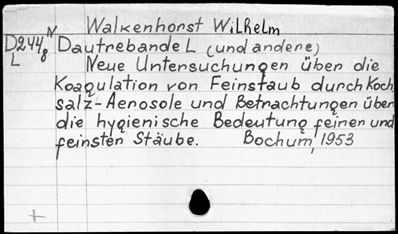 Walkenhorst Wilhelm
D244g N Dautrebande L (und andere)
L Neue Untersuchungen über die
Koagulation von Feinstaub durch Koch
salz-Aerosole und Betrachtungen über
die hygienische Bedeutung feiner und
feinsten Stäube. Bochum, 1953
+